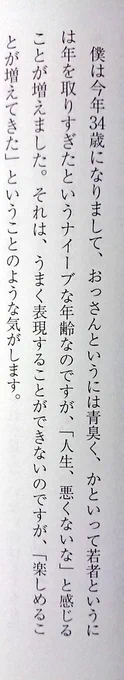 僕は今年34歳になりまして、おっさんというには青臭く、かといって若者というに
は年を取りすぎたというナイーブな年齢なのですが、「人生、悪くないな」と感じる
ことが増えました。それは、うまく表現することができないのですが、「楽しめるこ
とが増えてきた」ということのような気がします。